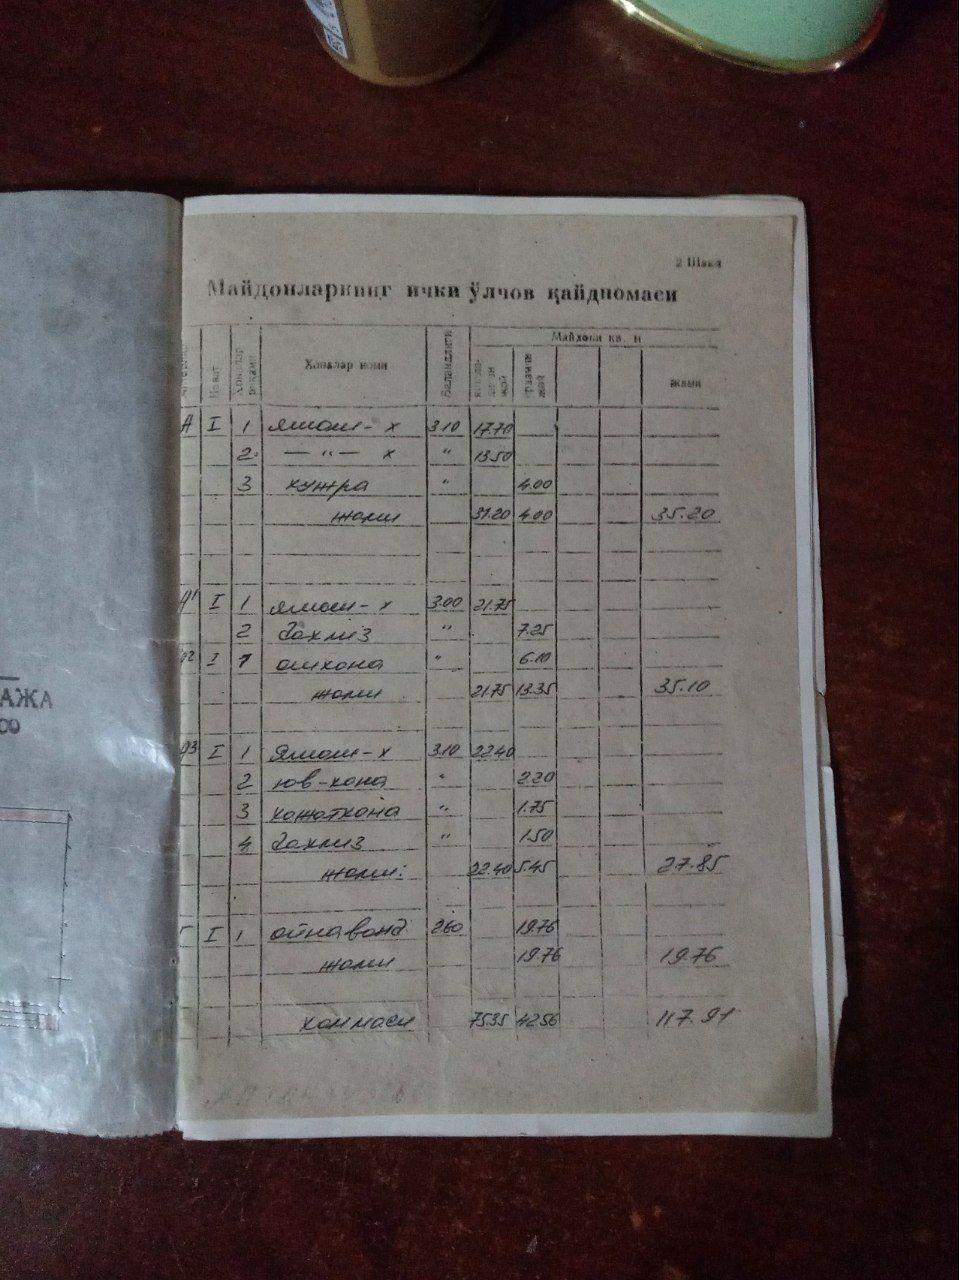 2 Шакл
Майдонларнинг ички ўлчов қайдномаси
Қават
Хоналар рақами
Хоналар номи
Баландлиги
Майдони кв. м
жами
А I 1 яшаш-х 3.10 17.70
2. — " — х " 13.50
3 хужра " 4.00
жами 31.20 4.00 35.20
А1 I 1 яшаш-х 3.00 21.75
2 дахлиз " 7.25
А2 I 1 ошхона " 6.10
жами 21.75 13.35 35.10
А3 I 1 яшаш-х 3.10 22.40
2 юв-хона " 2.20
3 хажатхона " 1.75
4 дахлиз " 1.50
жами: 22.40 5.45 27.85
Г I 1 ойнаванд 2.60 19.76
жами 19.76 19.76
хаммаси 75.35 42.56 117.91
АЖА